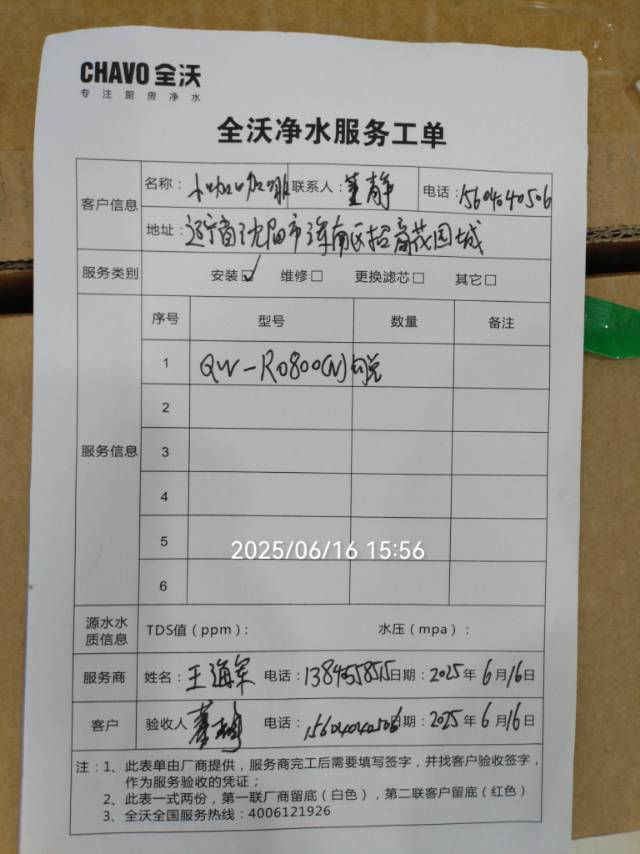 CHAVO 全沃
专注厨房净水
全沃净水服务工单
客户信息
名称: 联系人: 董静 电话: 15604040506
地址: 辽宁省沈阳市浑南区招商花园城
服务类别 安装☑ 维修□ 更换滤芯□ 其它□
服务信息
序号 型号 数量 备注
1 QW-R0800(N)
2
3
4
5
6
2025/06/16 15:56
源水水质信息 TDS值(ppm): 水压(mpa):
服务商 姓名: 王海军 电话: 日期: 2025年6月16日
客户 验收人 董静 电话: 15604040506 日期: 2025年6月16日
注: 1、此表单由厂商提供,服务商完工后需要填写签字,并找客户验收签字,
作为服务验收的凭证;
2、此表一式两份,第一联厂商留底(白色),第二联客户留底(红色)
3、全沃全国服务热线: 4006121926